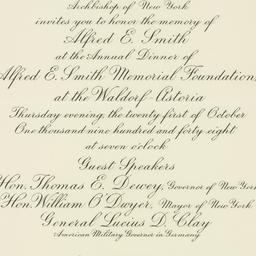 Archbishop of New York
invites you to honor the memory of
Alfred E. Smith
at the Annual Dinner of
Alfred E. Smith Memorial Foundation,
at the Waldorf-Astoria
Thursday evening, the twenty first of October
One thousand nine hundred and forty-eight
at seven o'clock
Guest Speakers
Hon. Thomas E. Dewey, Governor of New York
Hon. William O'Dwyer, Mayor of New York
General Lucius D. Clay
American Military Governor in Germany